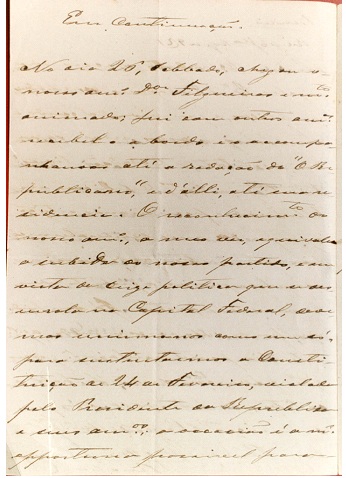 Em Continuação.
No dia 26, sabbado, chegou o
nosso am.º D.or Filgueiras e m.to
animado; fui com outros am.os
a bordo e o acompa
nhamos até a redação da "O Re
publicano", e d'alli, até sua re
sidencia. O reconhecim.to do
nosso am.º, a meu ver, equivale
a subida do nosso partido, em
vista da crize politica que se des
enrola na Capital Federal, deve
mos unirmonos como um só,
para instituirmos a Consti
tuição de 24 de Fevereiro, violada
pelo Presidente da Republica
e seus am.os: a occasião é a m.s
opportuna possivel para